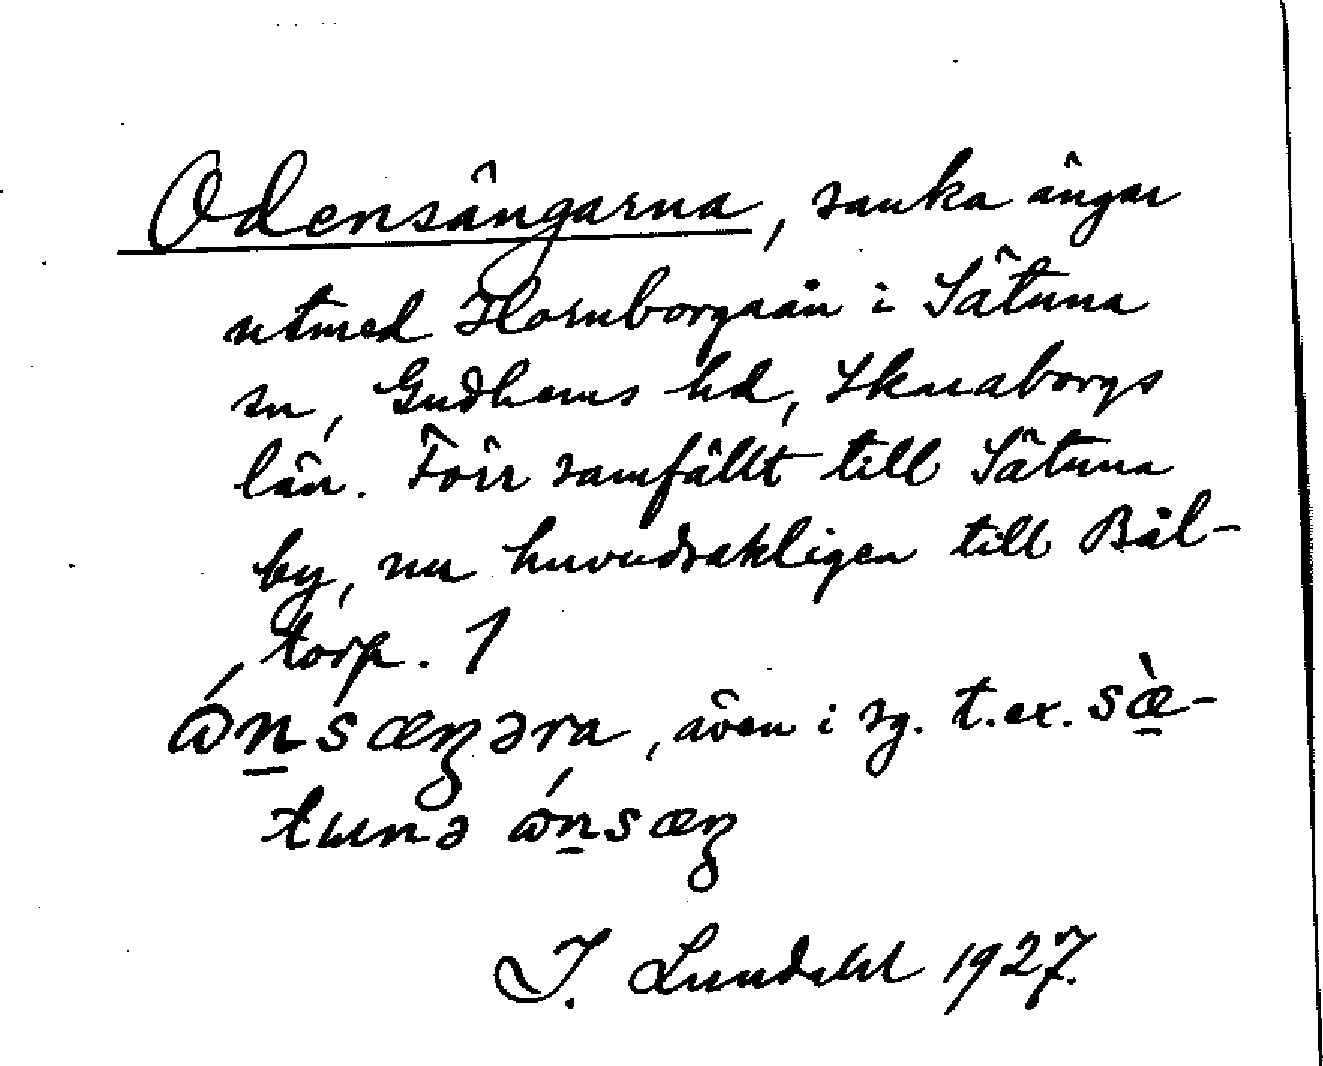 Odensängarna, sanka ängar
utmed Hornborgaån i Sätuna
sn, Gudhems hd, Skaraborgs
län. Förr samfällt till Sätuna
by, nu huvudsakligen till Bål-
torp. 1
ɷ́n̠sæŋəra, även i sg. t.ex. sæ̠̀-
tɯnə ɷ́n̠sæŋ
I. Lundahl 1927.